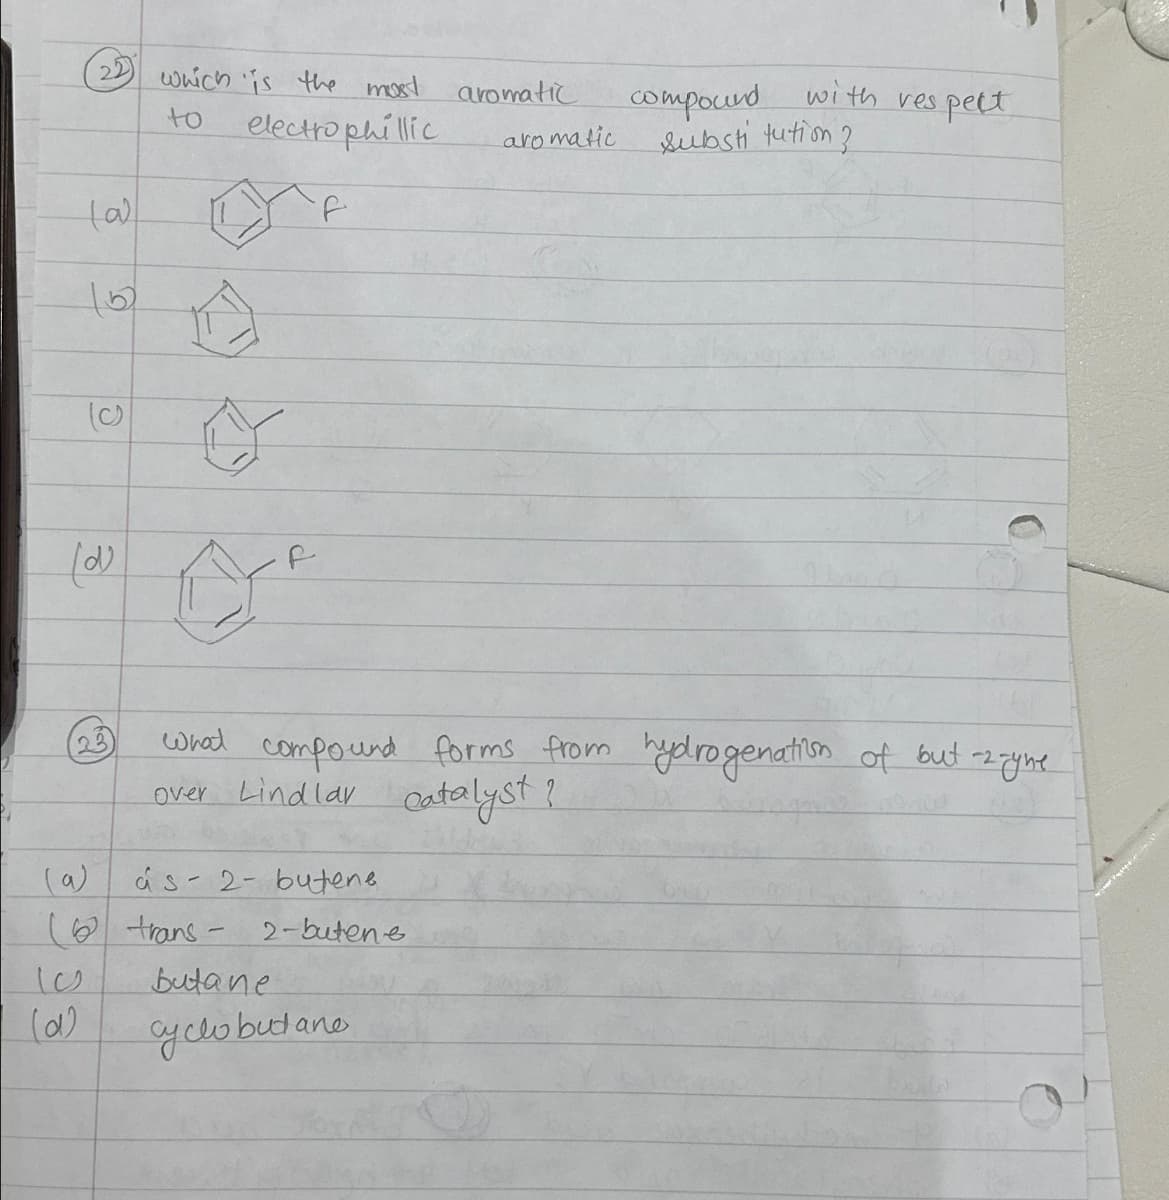 22 which is the most aromatic compound with respect
to electrophillic aromatic substitution?
(a) F
(b)
(c)
(d) F
23 what compound forms from hydrogenation of but-2-yne
over Lindlar catalyst?
(a) cis-2-butene
(b) trans- 2-butene
(c) butane
(d) cyclobutane